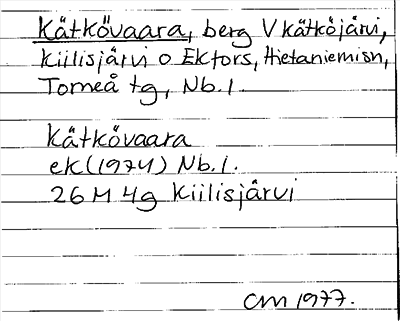 Kätkövaara, berg V Kätköjärvi,
Kiilisjärvi o Ekfors, Hietaniemisn,
Torneå tg, Nb. l.
Kätkövaara
ek (1974) Nb. l.
26 M 4g Kiilisjärvi
CM 1977.